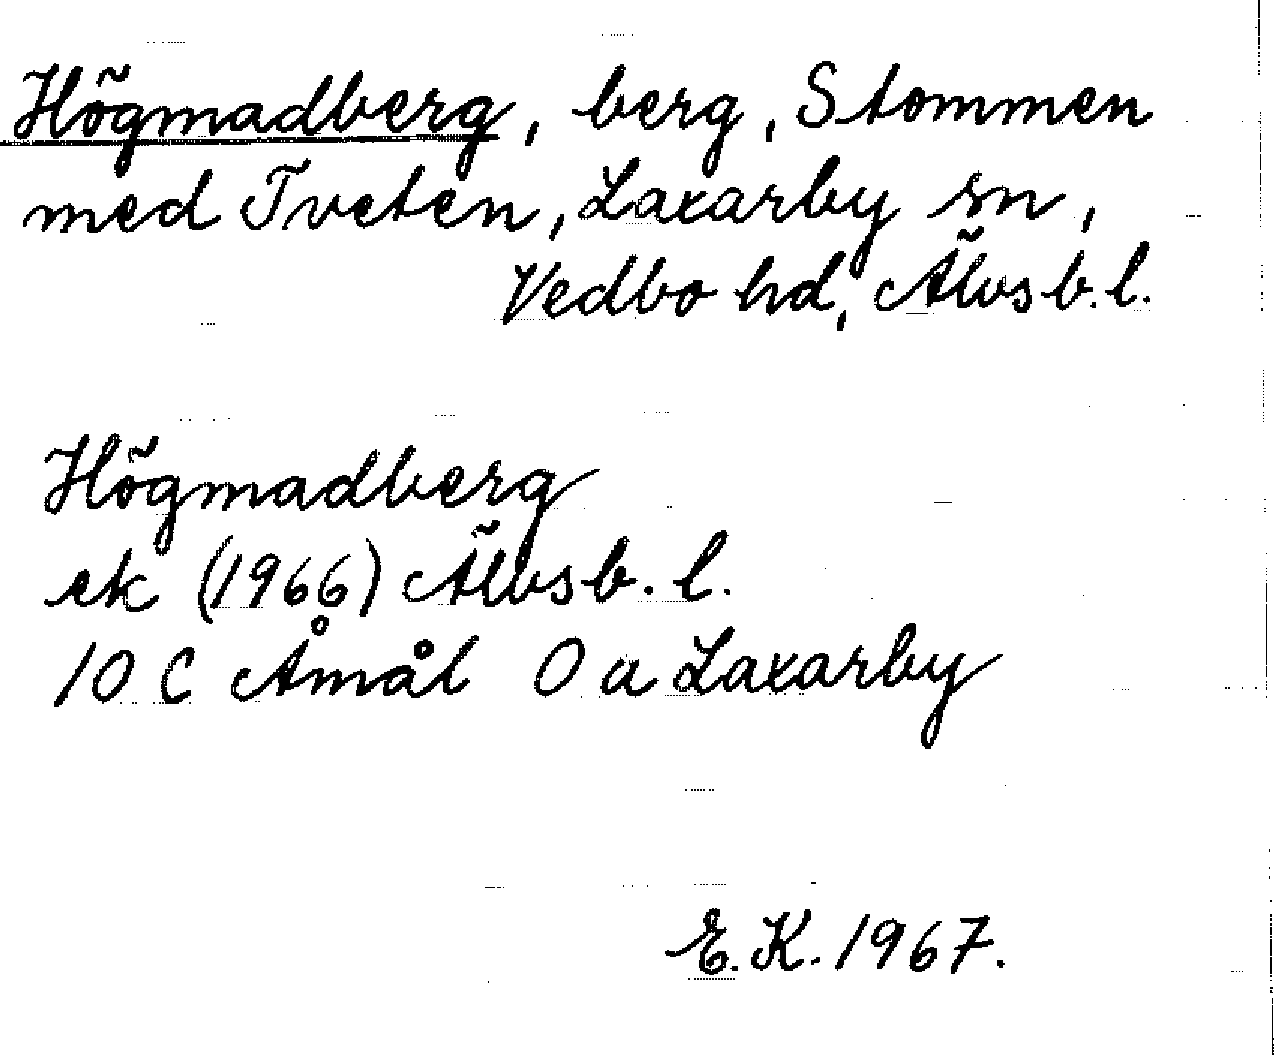 Högmadberg, berg, Stommen
med Tveten, Laxarby sn,
Vedbo hd, Älvsb. l.
Högmadberg
ek (1966) Älvsb. l.
10 C Åmål O a Laxarby
E. K. 1967.